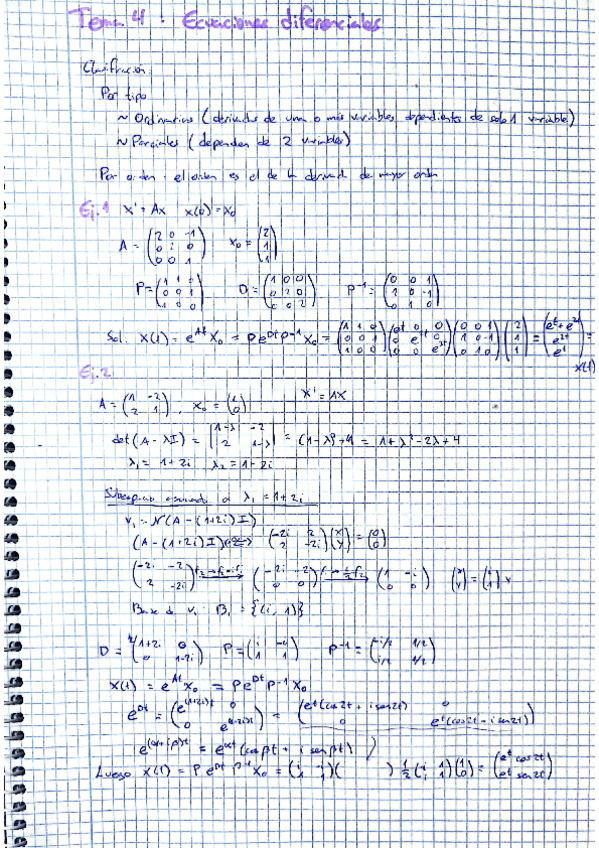 Tema 4 : Ecuaciones diferenciales
Clasificación:
Por tipo
~ Ordinarias (derivadas de una o más variables dependientes de solo 1 variable)
~ Parciales (dependen de 2 variables)
Por orden : el orden es el de la derivada de mayor orden
Ej. 1 X' = AX x(0) = X₀
A = (2 0 -1; 0 2 0; 0 0 1) X₀ = (2; 1; 1)
P = (1 1 0; 0 0 1; 1 0 0) D = (1 0 0; 0 2 0; 0 0 2) P⁻¹ = (0 0 1; 1 0 -1; 0 1 0)
Sol. X(t) = e^(At) X₀ = P e^(Dt) P⁻¹ X₀ = (1 1 0; 0 0 1; 1 0 0)(e^t 0 0; 0 e^(2t) 0; 0 0 e^(2t))(0 0 1; 1 0 -1; 0 1 0)(2; 1; 1) = (e^t + e^(2t); e^(2t); e^t) =
X(t)
Ej. 2
A = (1 -2; 2 1), X₀ = (1; 0) X' = AX
det(A - λI) = |1-λ -2; 2 1-λ| = (1-λ)² + 4 = 1 + λ² - 2λ + 4
λ₁ = 1 + 2i λ₂ = 1 - 2i
Subespacio asociado a λ₁ = 1 + 2i
V₁ = N(A - (1+2i)I)
(A - (1+2i)I) (-2i 2; 2 -2i)(x; y) = (0; 0)
(-2i -2; 2 -2i) (-2i -2; 0 0) (1 -i; 0 0) (x; y) = (i; 1) y
Base de V₁ B₁ = {(i, 1)}
D = (1+2i 0; 0 1-2i) P = (i -i; 1 1) P⁻¹ = (-i/2 1/2; i/2 1/2)
X(t) = e^(At) X₀ = P e^(Dt) P⁻¹ X₀
e^(Dt) = (e^((1+2i)t) 0; 0 e^((1-2i)t)) = (e^t(cos2t + i sen2t) 0; 0 e^t(cos2t - i sen2t))
e^((α+iβ)t) = e^(αt) (cos βt + i sen βt)
Luego X(t) = P e^(Dt) P⁻¹ X₀ = (i -i; 1 1)( ) 1/2 (-i 1; i 1)(1; 0) = (e^t cos2t; e^t sen2t)